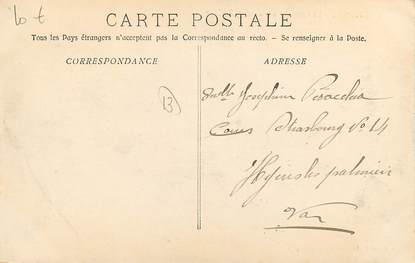 CARTE POSTALE
Tous les Pays étrangers n'acceptent pas la Correspondance au recto. – Se renseigner à la Poste.
CORRESPONDANCE
ADRESSE
13
Melle Joséphine
Cours Strasbourg No 14
Hyères les palmiers
Var